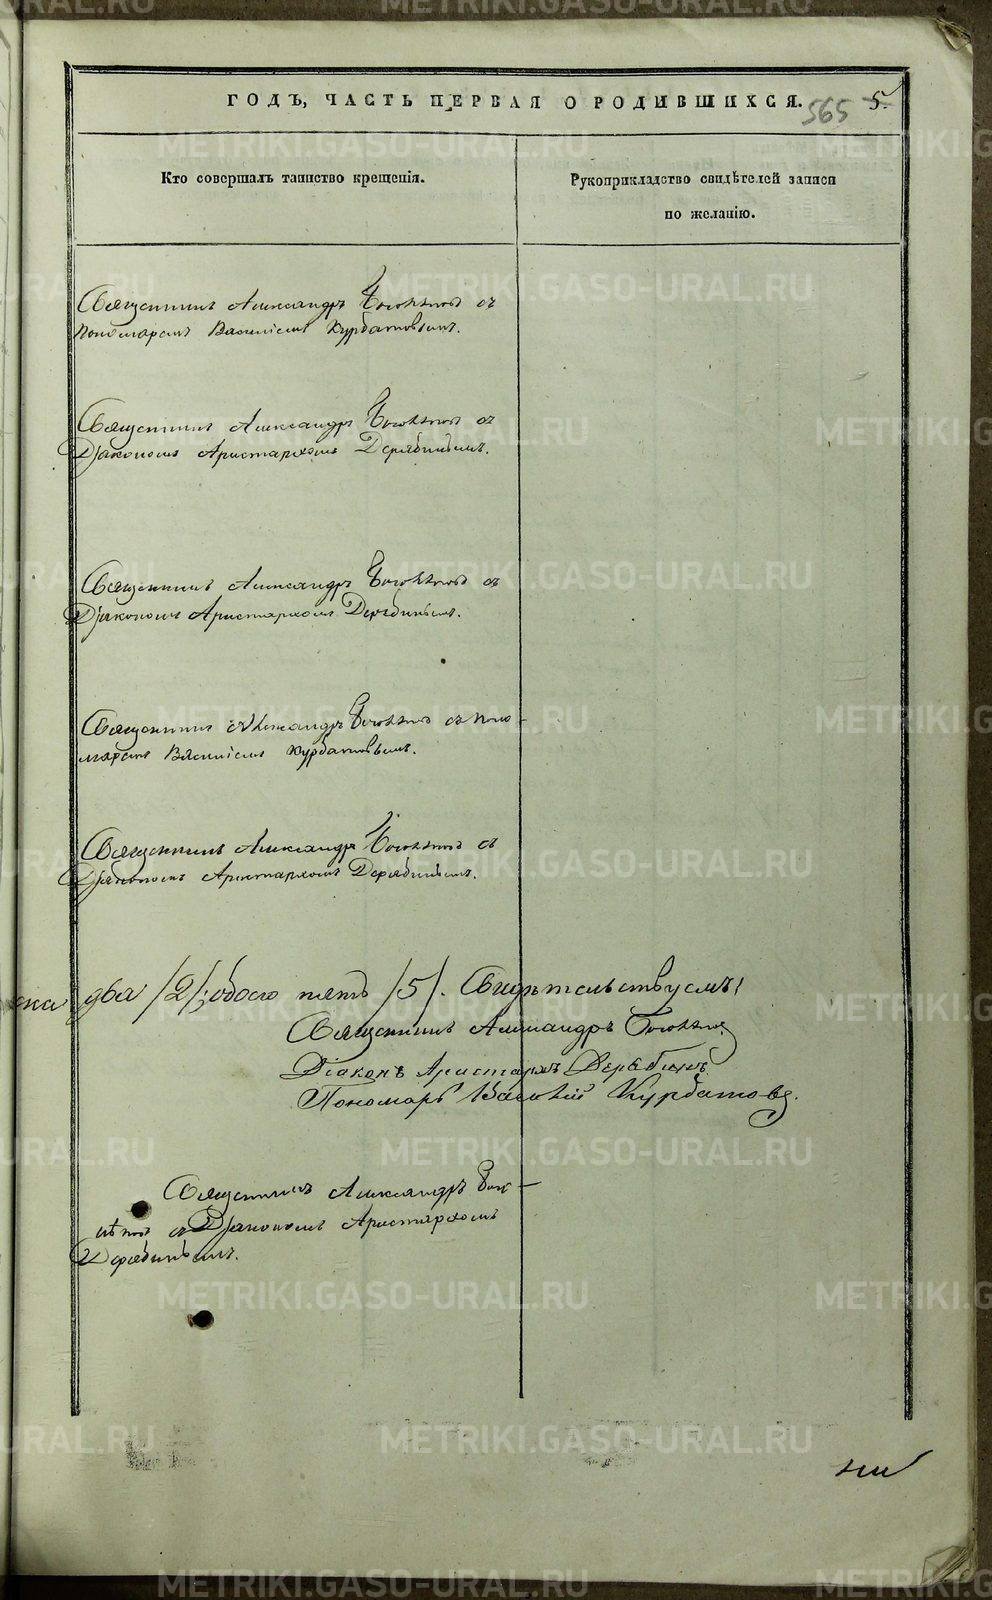 ГОДЪ, ЧАСТЬ ПЕРВАЯ О РОДИВШИХСЯ.
565 5.
Кто совершалъ таинство крещенія.
Рукоприкладство свидѣтелей записи
по желанію.
Священникъ Александръ съ
Пономаремъ Василіемъ Курбатовымъ.
Священникъ Александръ съ
Діакономъ Аристархомъ Дерябинымъ.
Священникъ Александръ съ
Діакономъ Аристархомъ Дерябинымъ.
Священникъ Александръ съ Поно-
маремъ Василіемъ Курбатовымъ.
Священникъ Александръ съ
Діакономъ Аристархомъ Дерябинымъ.
два /2/; обоего пять /5/. Свидѣтельствуемъ:
Священникъ Александръ
Діаконъ Аристархъ Дерябинъ
Пономарь Василій Курбатовъ.
Священникъ Александръ
съ Діакономъ Аристархомъ
Дерябинымъ.
METRIKI.GASO-URAL.RU